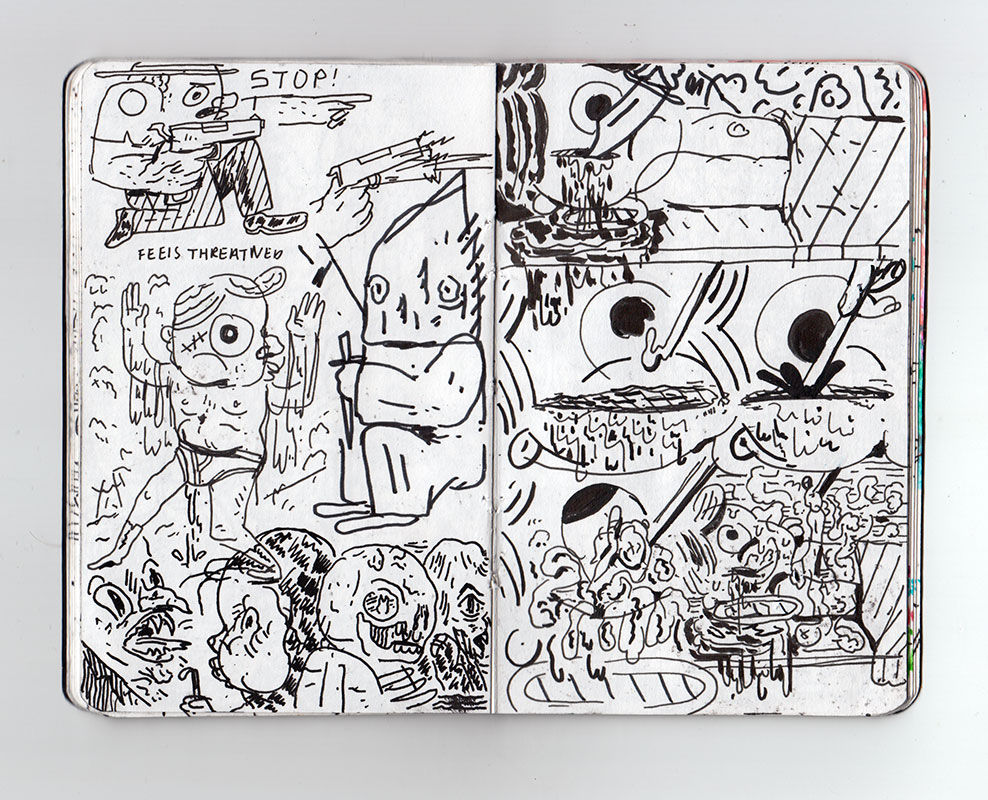 STOP!
FEEIS THREATNED